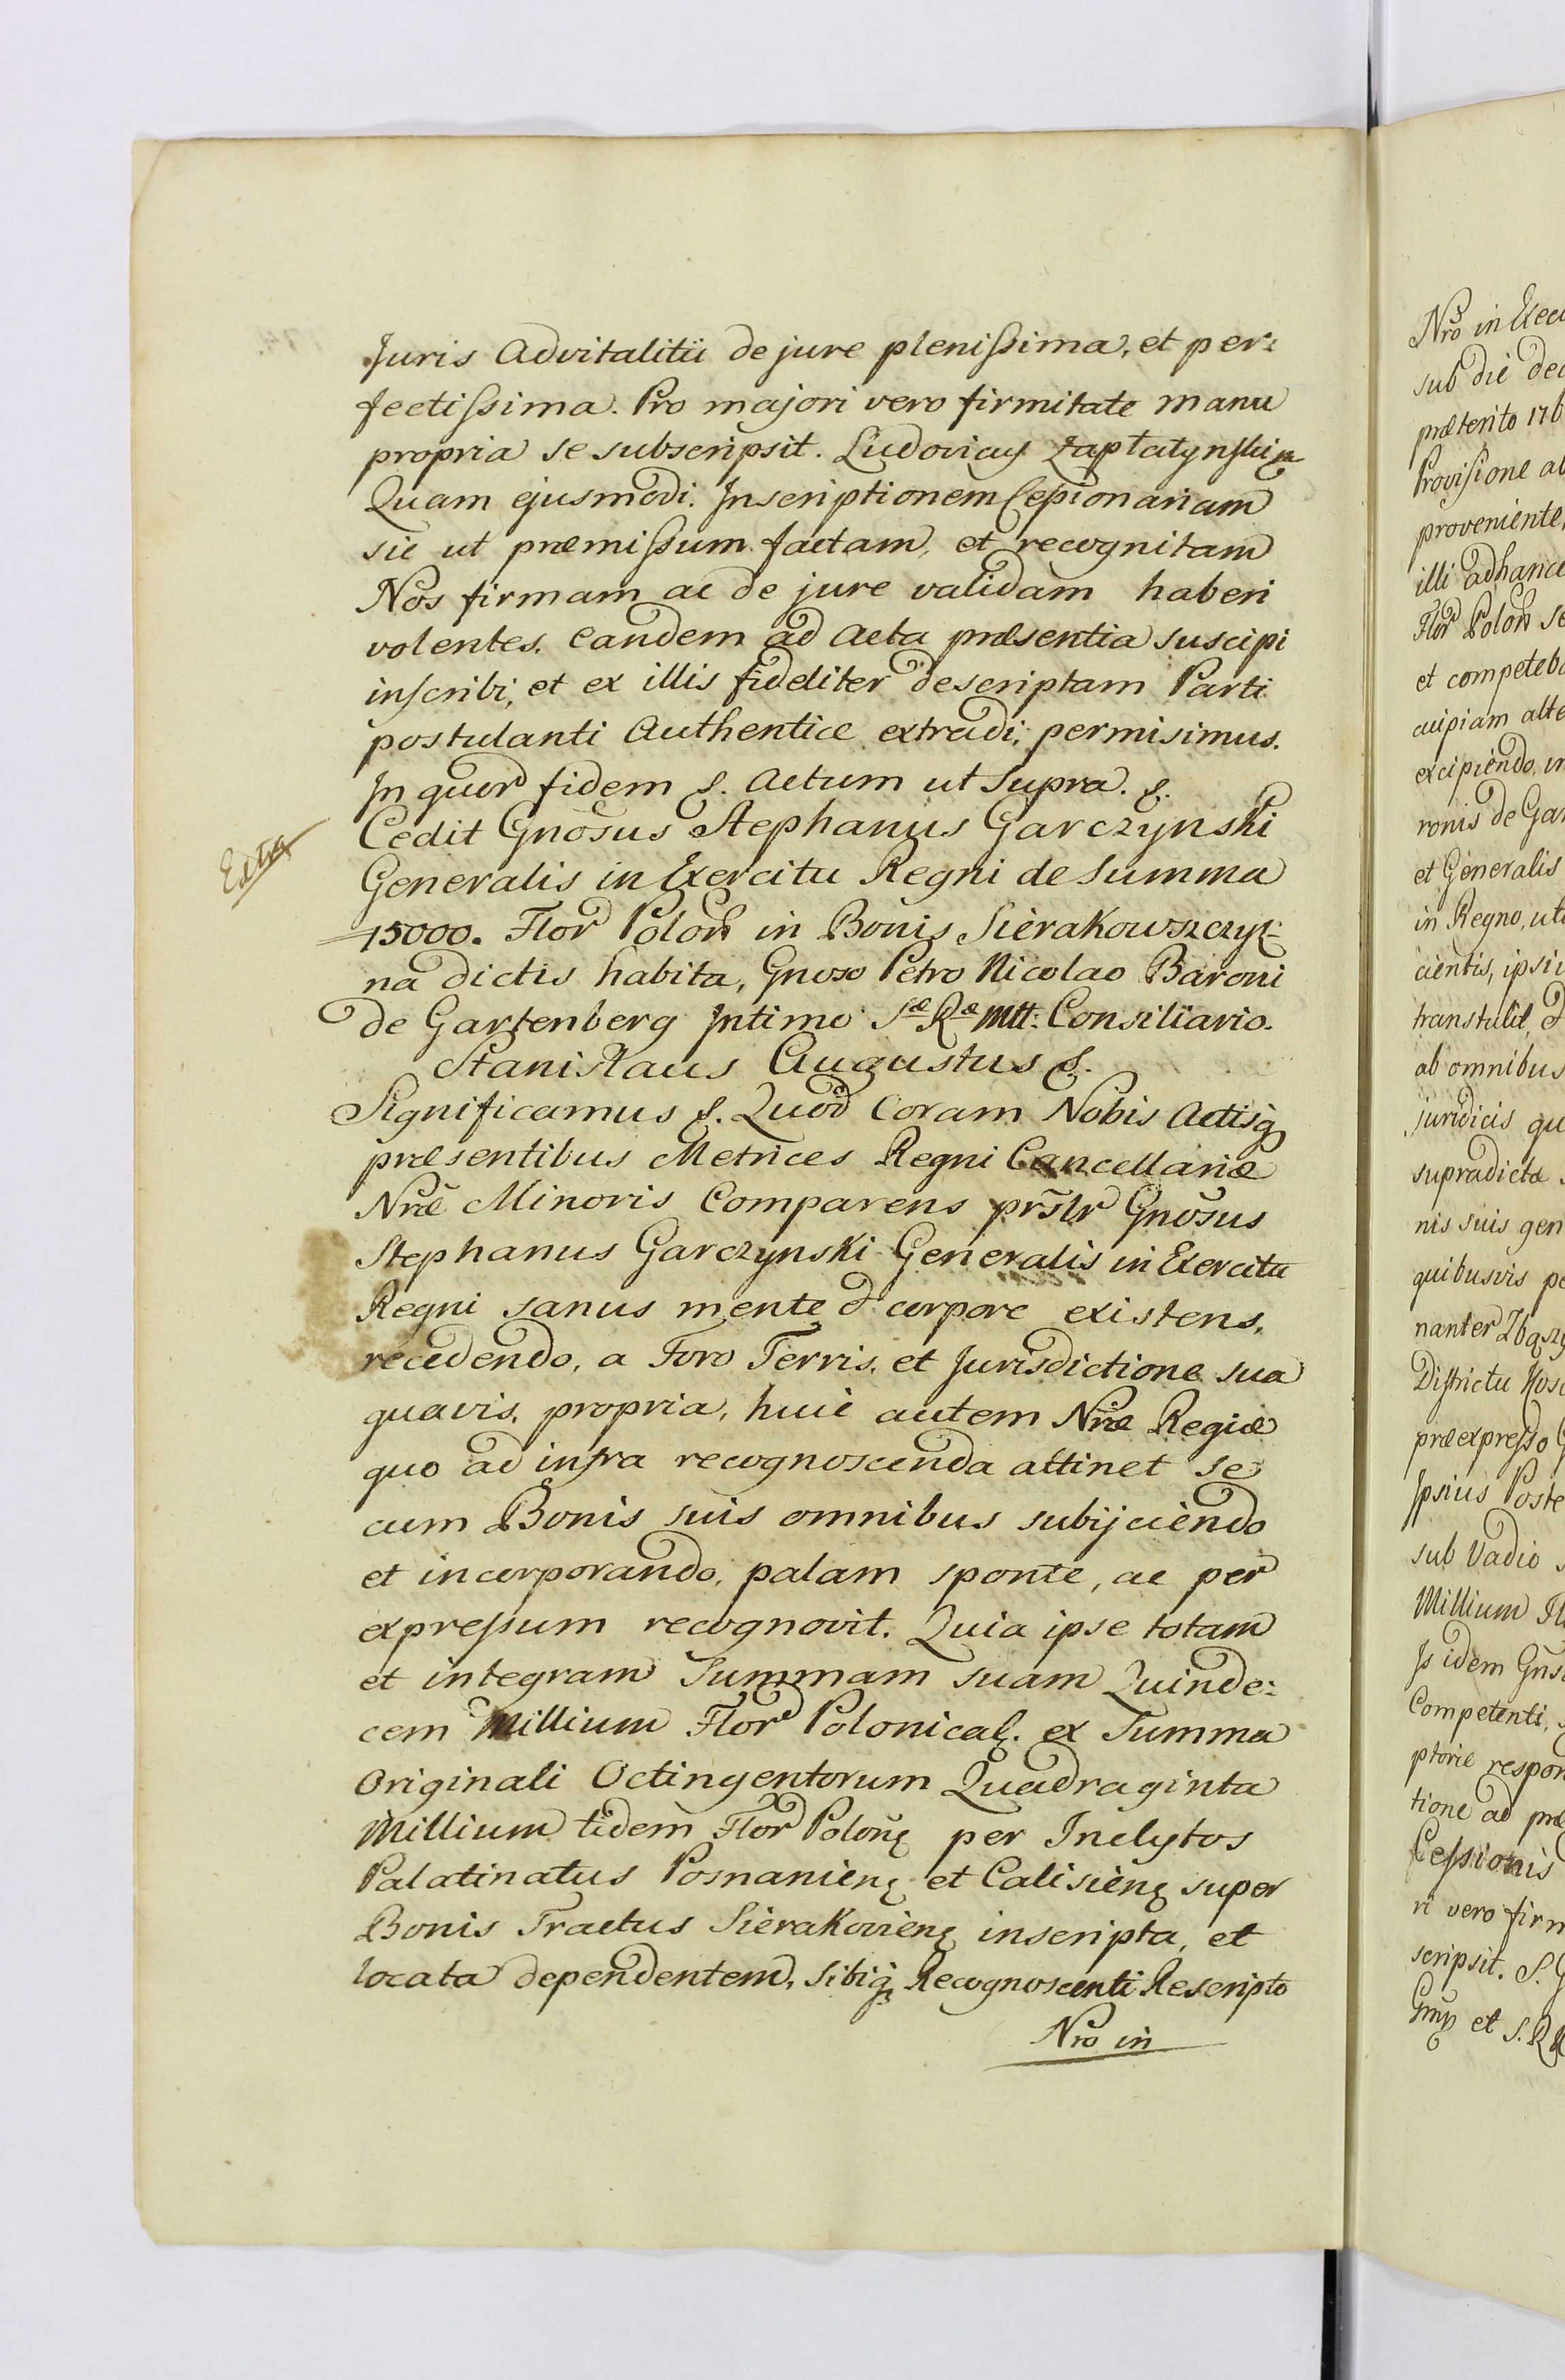 Juris Advitalitii de jure plenissima, et per:
fectissima. Pro majori vero firmitate manu
propria se subscripsit. Ludovicus
Quam ejusmodi Inscriptionem Cessionariam
sic ut præmissum factam, et recognitam
Nos firmam ac de jure validam haberi
volentes. Eandem ad Acta præsentia suscipi
inscribi, et ex illis fideliter descriptam Parti
postulanti Authentice extradi; permisimus.
In quor fidem &. Actum ut Supra. &.
Extra
Cedit Gnõsus Stephanus Garczynski
Generalis in Exercitu Regni de Summa
15000. Flor Polon in Bonis Sierakowszczyz:
na dictis habita, Gnoso Petro Nicolao Baroni
de Gartenberg Intimo Sæ Ræ Mtt: Consiliario.
Stanislaus Augustus &.
Significamus &. Quod Coram Nobis Actisq
præsentibus Metrices Regni Cancellariæ
Nræ Minoris Comparens prslr Gnõsus
Stephanus Garczynski Generalis in Exercitu
Regni sanus mente & corpore existens,
recedendo, a Foro Terris, et Jurisdictione sua
quavis, propria, huic autem Nræ Regiæ
quo ad infra recognoscenda attinet se
cum Bonis suis omnibus subijciendo
et incorporando, palam sponte, ac per
expressum recognovit. Quia ipse totam
et integram Summam suam Quinde:
cem Millium Flor Polonical. ex Summa
Originali Octingentorum Quadraginta
Millium tidem Flor Polonę per Inclytos
Palatinatus Posnanienę et Calisienę super
Bonis Tractus Sierakovienę inscripta, et
locata dependentem, Sibiq Recognoscenti Rescripto
Nro in
Nro in
sub die
præterito 176
Provisione
proveniente,
illi adhance
Flor Polon
et competeb
cuipiam alte
excipiendo, in
ronis de Gar
et Generalis
in Regno, uti
cientis, ipsi
transtulit,
ab omnibus
juridicis qu
supradicta
nis suis gen
quibusvis pe
nanter Zbąszy
Districtu Kos
præexpresso
Ipsius Poste
sub Vadio
Millium
Is idem
Competenti,
ptorie respon
tione ad præ
Cessionis
ri vero firm
scripsit. S. G
et S. R